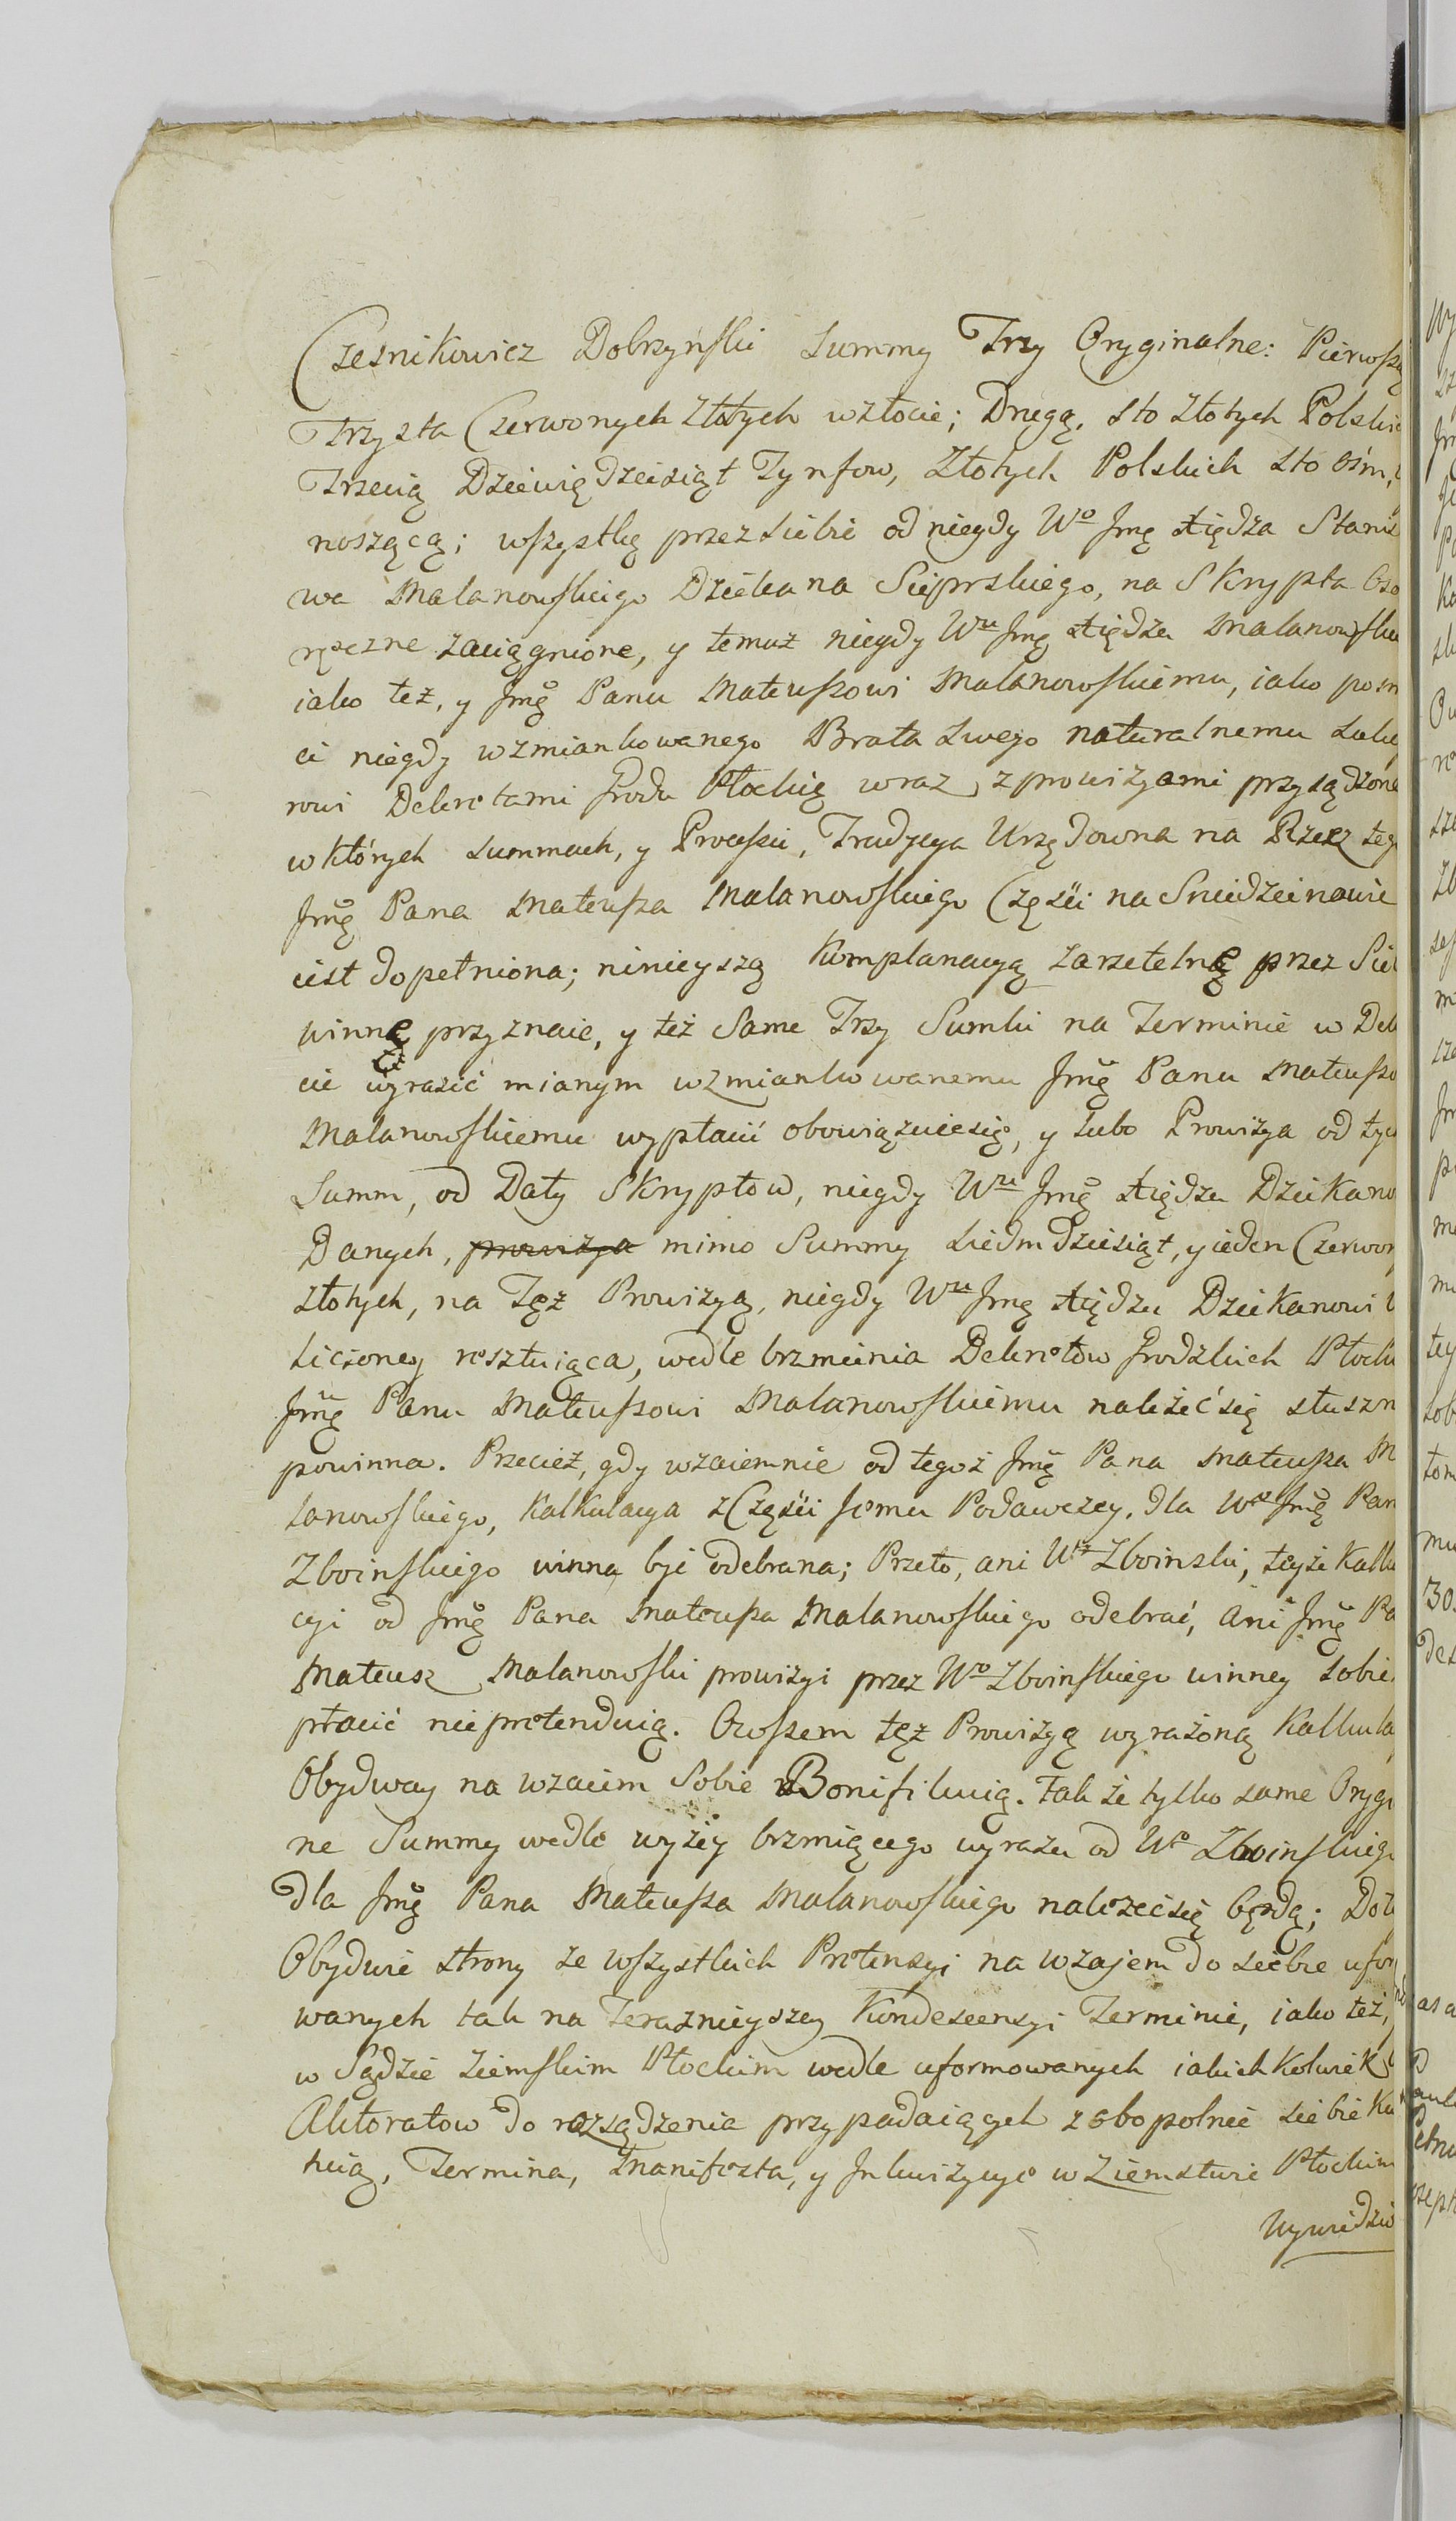 Czesnikowicz Dobrzynski Summy Trzy Oryginalne: Pierwszą
Trzysta Czerwonych Złotych w złocie; Drugą, sto Złotych Polski
Trzecią Dziewiędziesiąt Tynfow, Złotych Polskich sto ośm,
noszącą; wszystkę przez siebie od niegdy Wo Jmę Xiędza Stanis
wa Malanowskiego Dziekana Sieprskiego, na Skrypta Oso
ręczne zaciągnione, y temuż niegdy Wu Jmę Xiędzu Malanowsku
iako też, y Jmę Panu Mateuszowi Malanowskiemu, iako po
ci niegdy wzmiankowanego Brata swego naturalnemu Sukc
rowi Dekretami Grodu Płockię wraz z prowizyami przysądzone
w których summach, y Processu, Tradycya Urzędowna na Rzecz teg
Jmę Pana Mateusza Malanowskiego Części na Sniedzeinowie
iest dopełniona; ninieyszą Komplanacyą zarzetelnę przez Sie
winnę przyznaie, y też Same Trzy Sumki na Terminie w Dek
cie wyrazić mianym wzmiankowanemu Jmę Panu Mateuszo
Malanowskiemu wypłacić obowiązuiesię, y lubo Prowizya od tyc
Summ, od Daty Skryptow, niegdy Wu Jmę Xiędzu Dziekano
Danych, prowizya mimo Summy siedmdziesiąt, y ieden Czerwon
złotych, na Tęż Prowizyą, niegdy Wu Jmę Xiędzu Dziekanowi
liczoney resztuiąca, wedle brzmienia Dekretow Grodzkich Płocki
Jmę Panu Mateuszowi Malanowskiemu należeć się słuszn
powinna. Przecież, gdy wzaiemnie od tegoż Jmę Pana Mateusza M
lanowskiego, Kalkulacya z Części Jemu Podawczey, dla Wo Jmę Pan
Zboinskiego winna byc odebrana; Przeto, ani Wy Zboinski, teyże Kalku
cyi od Jmę Pana Mateusza Malanowskiego odebrać, ani Jmę Pa
Mateusz Malanowski prowizyi przez Wo Zboinskiego winney sobie
płacić niepretenduią. Owszem tęż Prowizyą wyrażoną Kalkula
Obydway na wzaiem Sobie Bonifikuią. Tak że tylko same Orygi
ne Summy wedle wyżey brzmiącego wyrazu od Wo Zboinskieg
dla Jmę Pana Mateusza Malanowskiego należeć się będą; Dot
Obydwie strony ze wszystkich Pretensyi na wzajem do siebie ufor
wanych tak na Teraznieyszey Kondescensyi Terminie, iako też,
w Sądzie Ziemskim Płockim wedle uformowanych iakichkolwiek
Aktoratow do rozsądzenia przypadaiących zobopolnie siebie Kw
tuią, Termina, Manifesta, y Inkwizycye w Ziemstwie Płockim
Wywiedzio